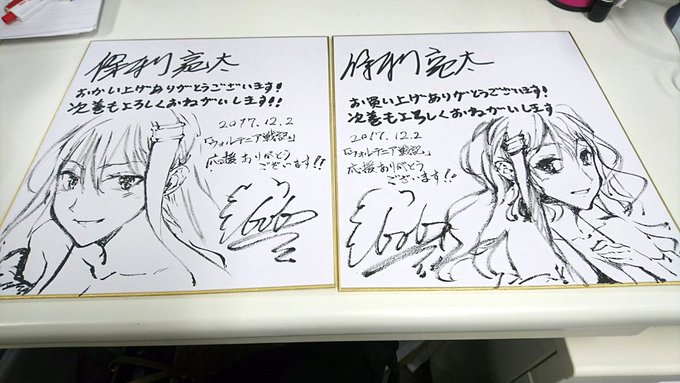 保利亮太
おかい上げありがとうございます!
次巻もよろしくおねがいします!!
2017.12.2
「ウォルテニア戦記」
応援ありがとう
ございます!!
保利亮太
お買い上げありがとうございます!
次巻もよろしくおねがいします
2017.12.2
「ウォルテニア戦記」
応援ありがとう
ございます!!